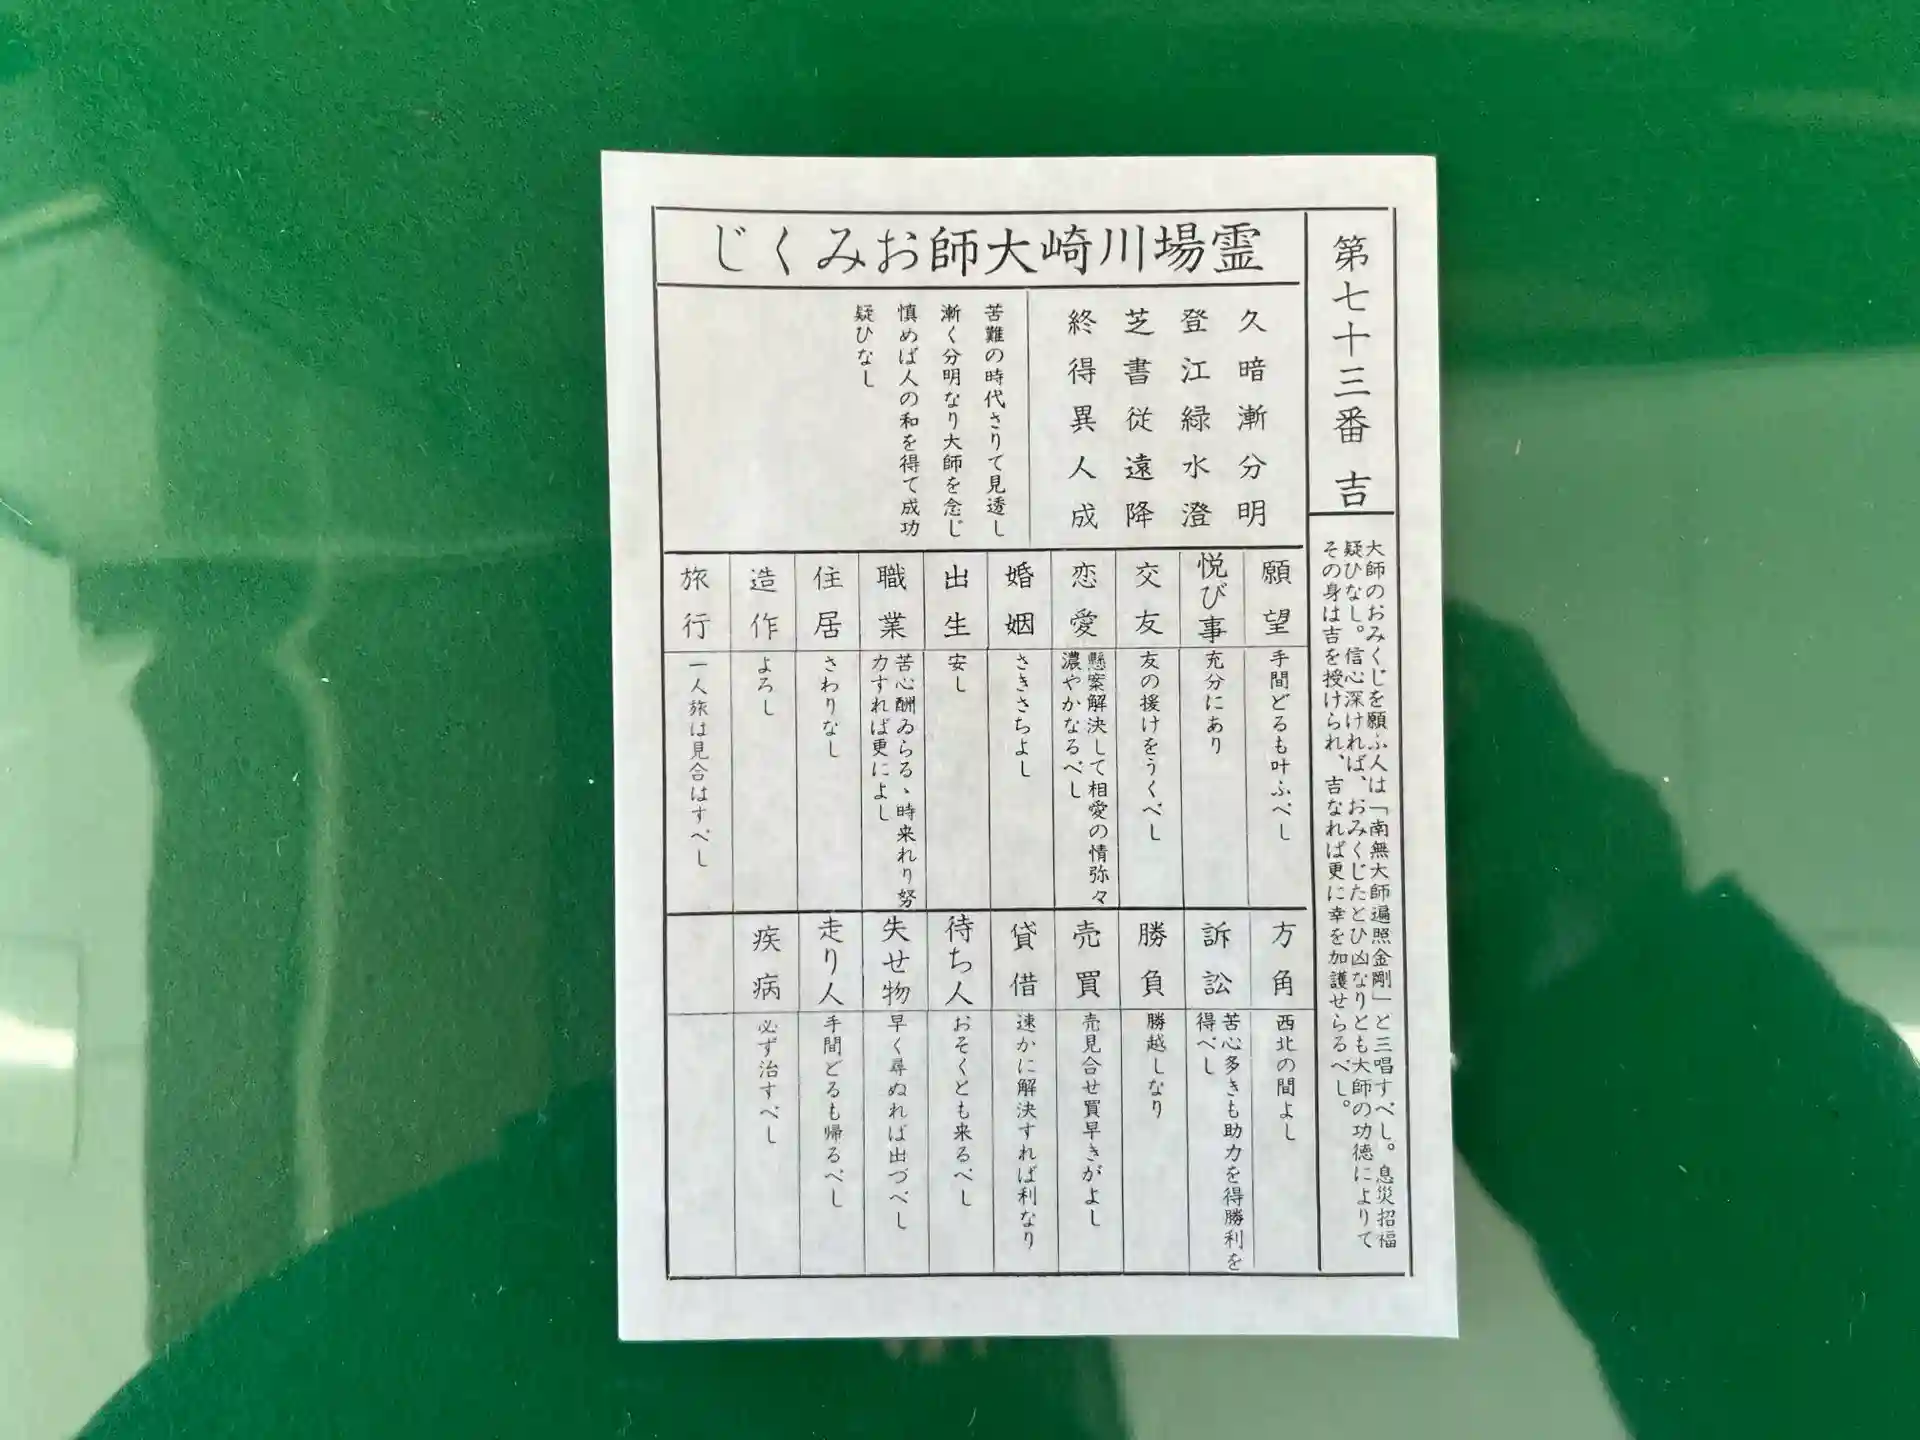 第七十三番 吉
大師のおみくじを願ふ人は「南無大師遍照金剛」と三唱すべし。息災招福
疑ひなし。信心深ければ、おみくじたとひ凶なりとも大師の功徳によりて
その身は吉を授けられ、吉なれば更に幸を加護せらるべし。
霊場川崎大師おみくじ
久暗漸分明
登江緑水澄
芝書従遠降
終得異人成
苦難の時代さりて見透し
漸く分明なり大師を念じ
慎めば人の和を得て成功
疑ひなし
願望
手間どるも叶ふべし
悦び事
充分にあり
交友
友の援けをうくべし
恋愛
懸案解決して相愛の情弥々
濃やかなるべし
婚姻
さきさちよし
出生
安し
職業
苦心酬ゐらるゝ時来れり努
力すれば更によし
住居
さわりなし
造作
よろし
旅行
一人旅は見合はすべし
方角
西北の間よし
訴訟
苦心多きも助力を得勝利を
得べし
勝負
勝越しなり
売買
売見合せ買早きがよし
貸借
速かに解決すれば利なり
待ち人
おそくとも来るべし
失せ物
早く尋ぬれば出づべし
走り人
手間どるも帰るべし
疾病
必ず治すべし